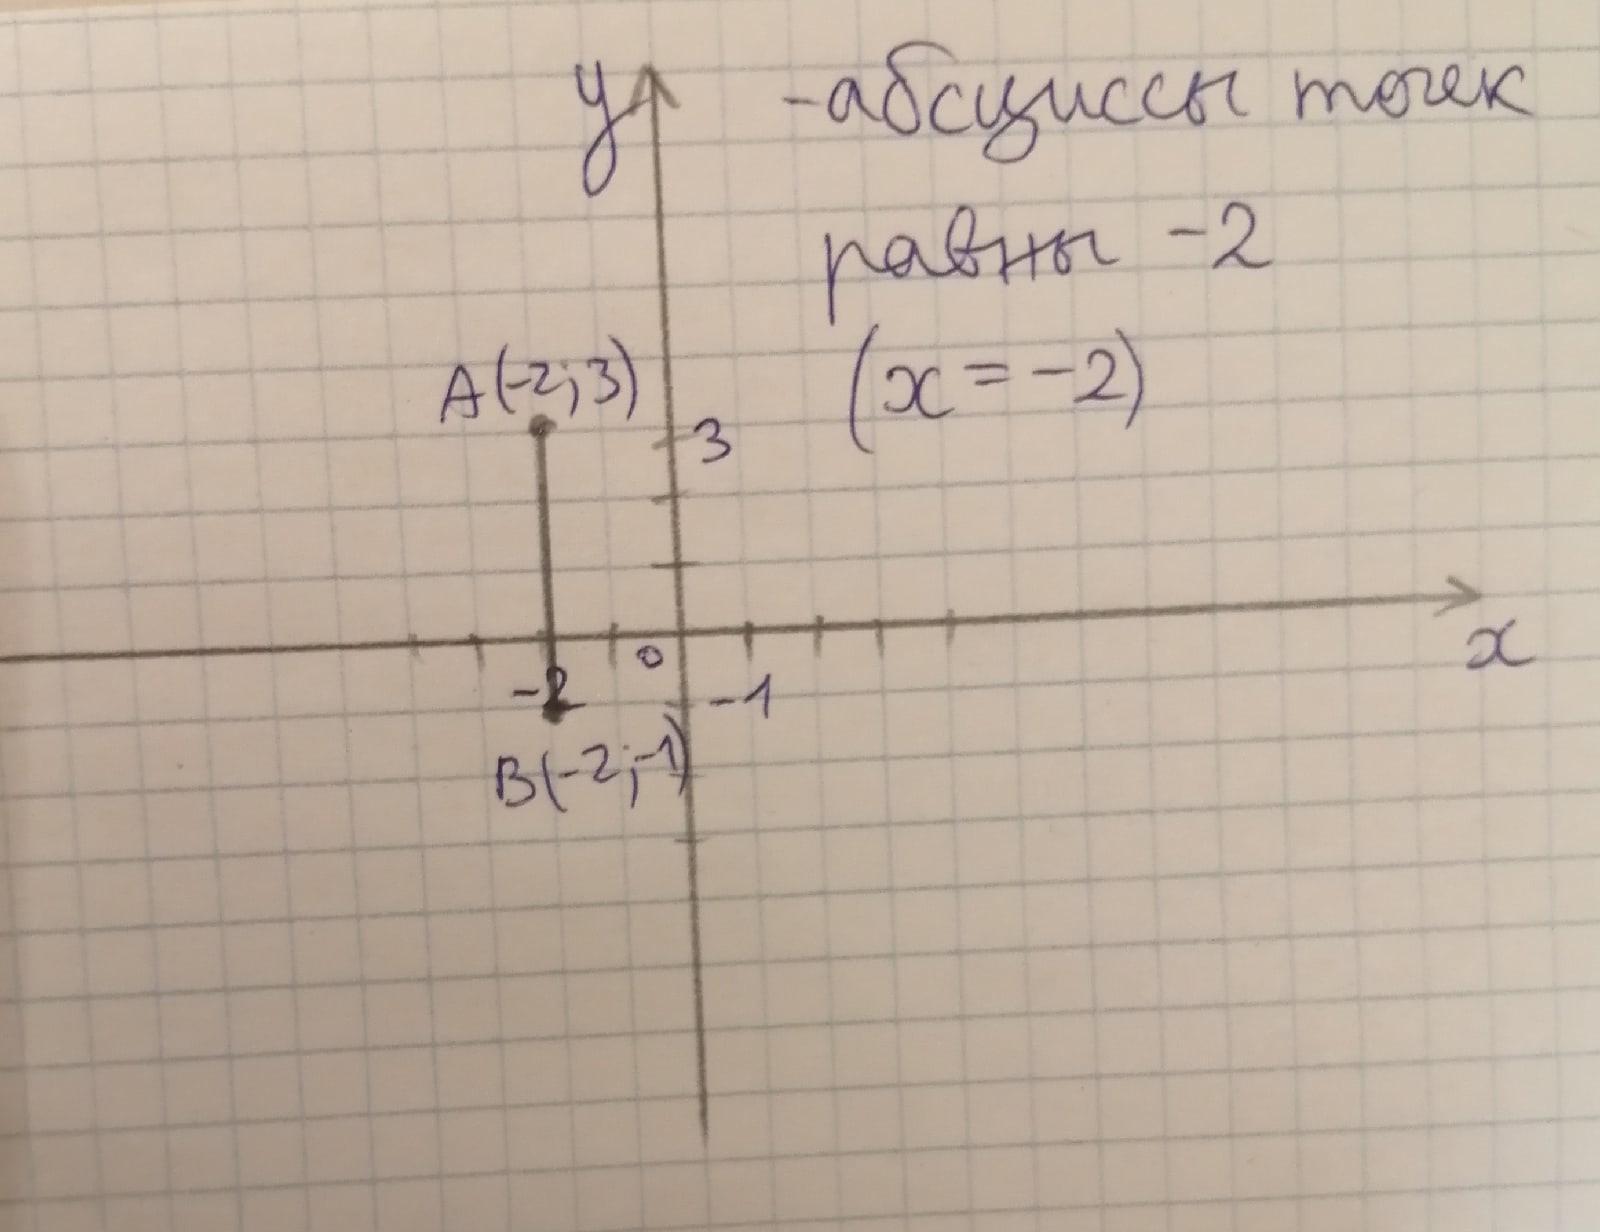 y
-абсциссы точек
равны -2
(x = -2)
A(-2; 3)
3
0
x
-2
-1
B(-2; -1)